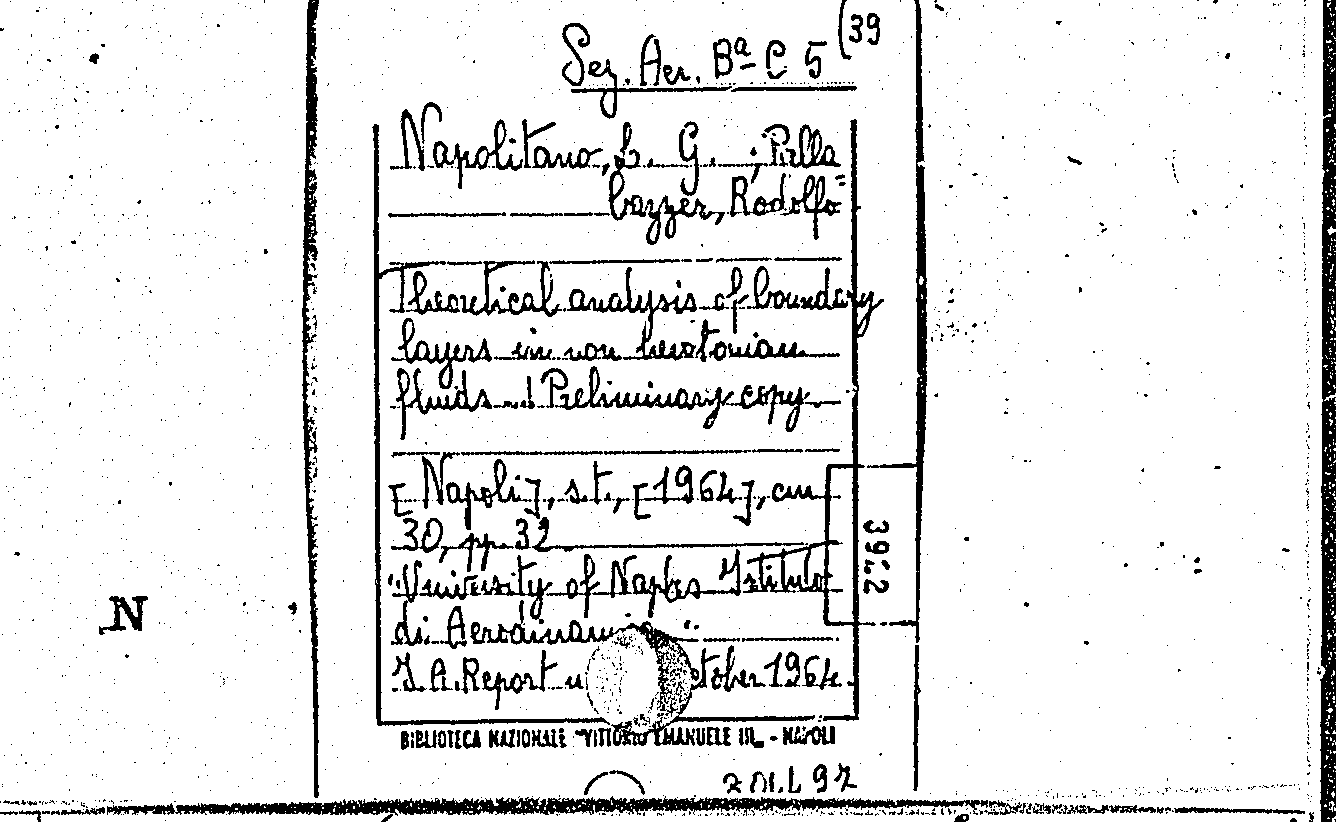 Sez. Aer. Bª C 5 (39
Napolitano, L. G. ; Pozzi
Rodolfo
Theoretical analysis of boundary
layers in non newtonian
fluids... Preliminary copy
[Napoli], s.t., [1964], cm
30, pp. 32
"University of Naples Istituto
di Aerodinamica"
I.A. Report n ctober 1964.
BIBLIOTECA NAZIONALE "VITTORIO EMANUELE III" - NAPOLI
N